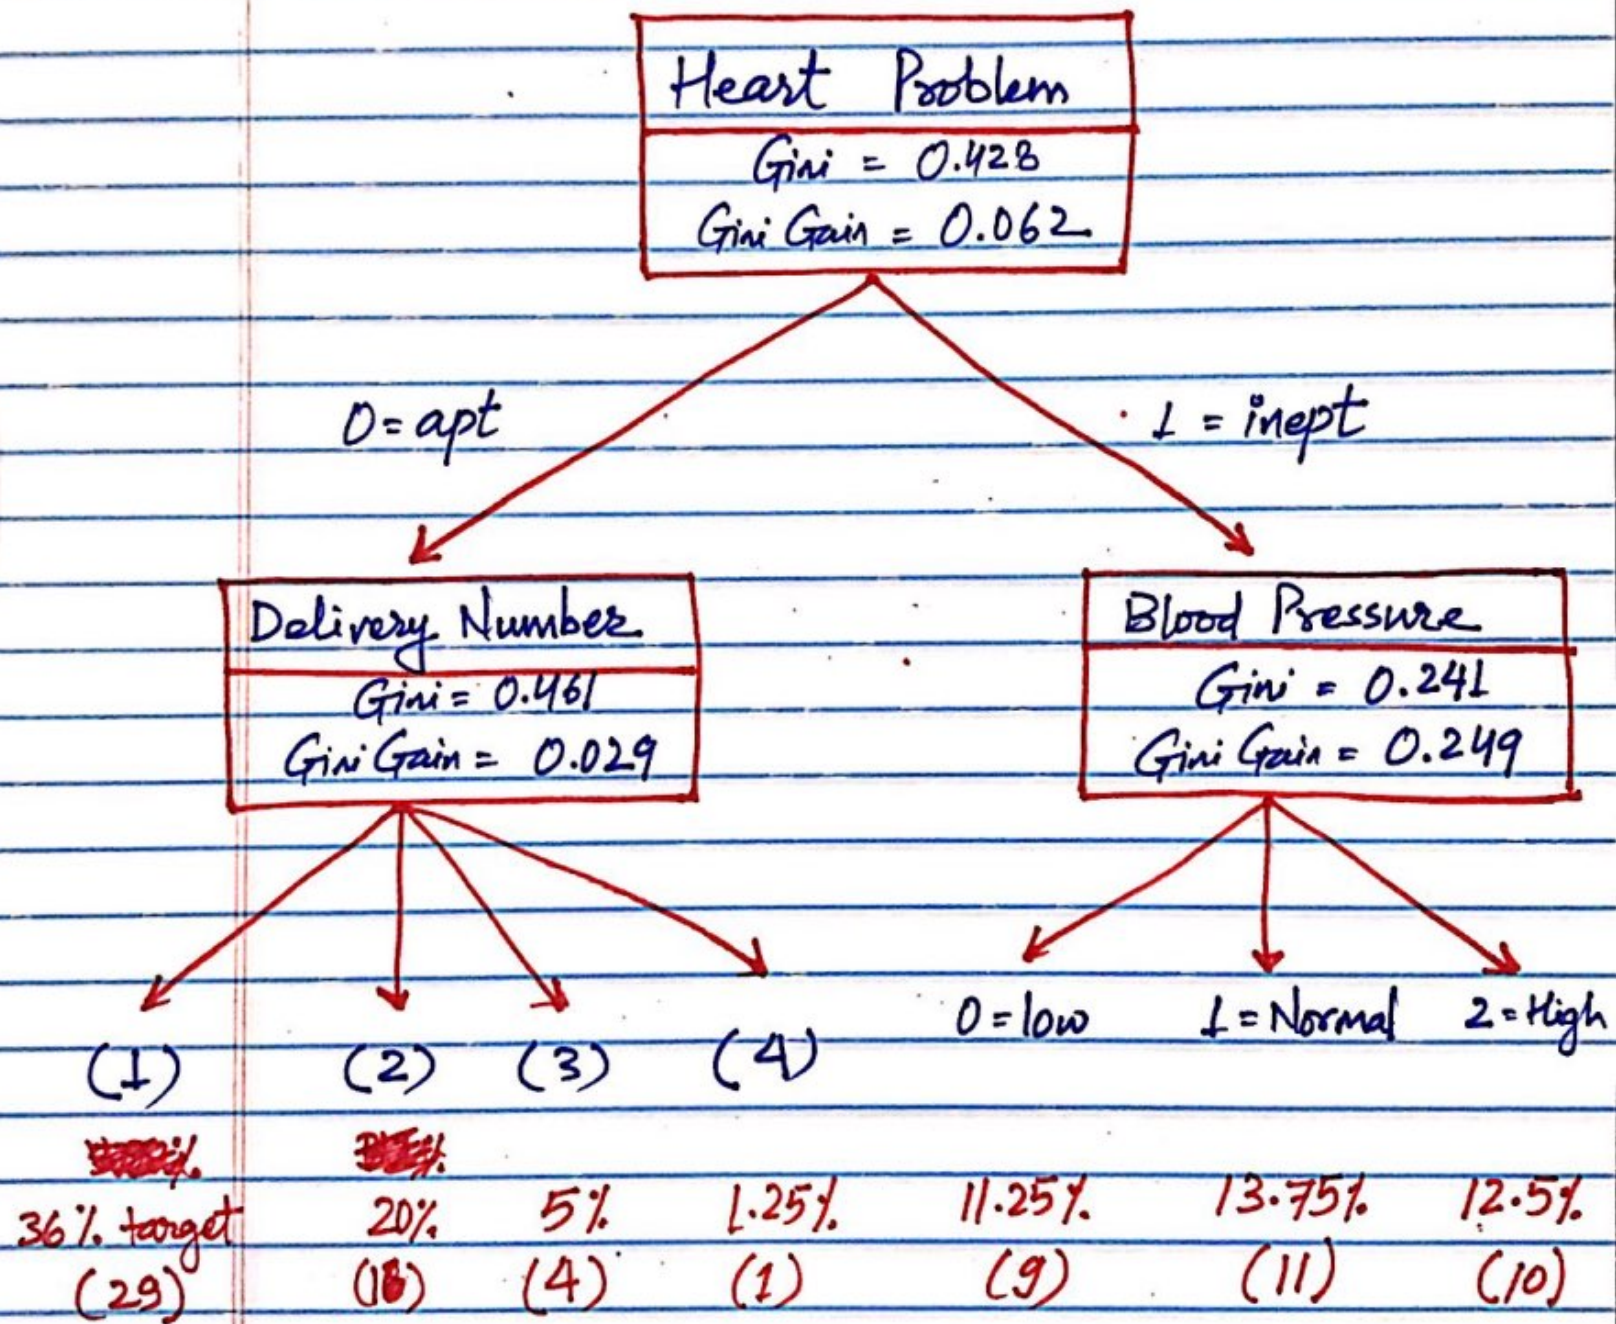 Heart Problem
Gini = 0.428
Gini Gain = 0.062
0 = apt
1 = inept
Delivery Number
Gini = 0.461
Gini Gain = 0.029
Blood Pressure
Gini = 0.241
Gini Gain = 0.249
(1) (2) (3) (4) 0 = low 1 = Normal 2 = High
36% target 20% 5% 1.25% 11.25% 13.75% 12.5%
(29) (16) (4) (1) (9) (11) (10)